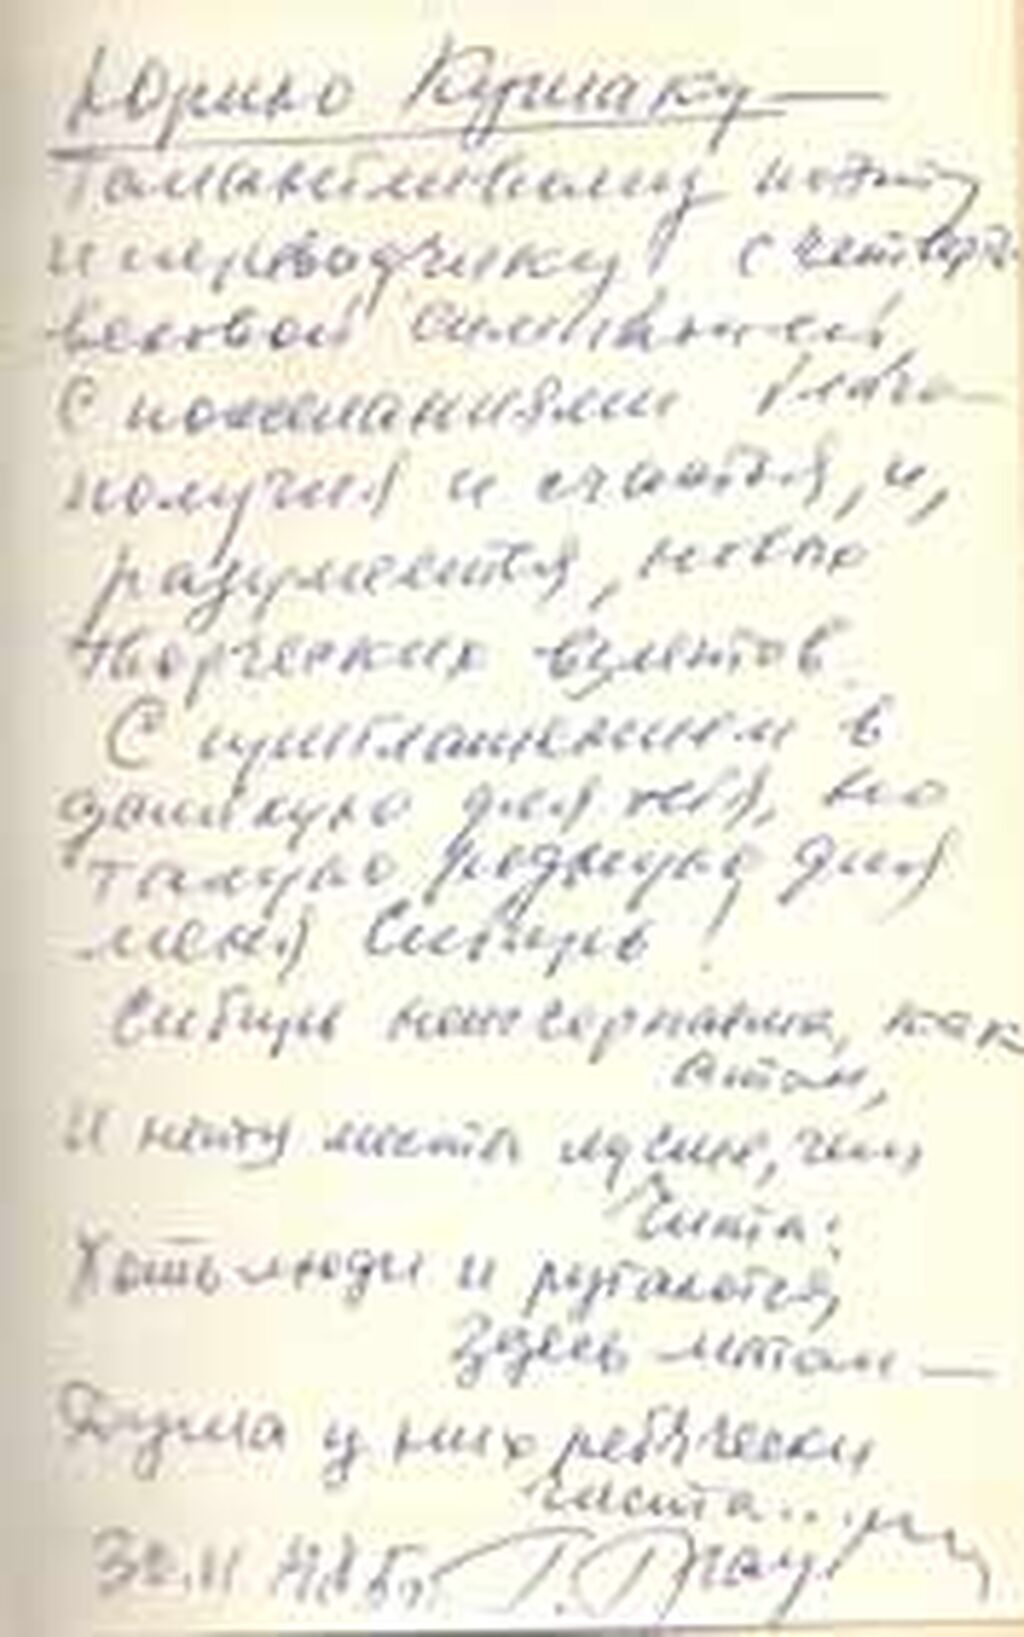 Юрию Кушаку —
Талантливому поэту
и переводчику с четверть
вековой
С пожеланиями благо
получия и счастья, и,
разумеется, новых
творческих взлетов.
С приглашением в
далекую для тебя, но
такую родную для
меня Сибирь!
Сибирь неисчерпаема, как
атом,
И нету места лучше, чем
Чита:
Хоть люди и ругаются
здесь матом —
Душа у них ребячески
чиста...
30.11 Г. Граубин